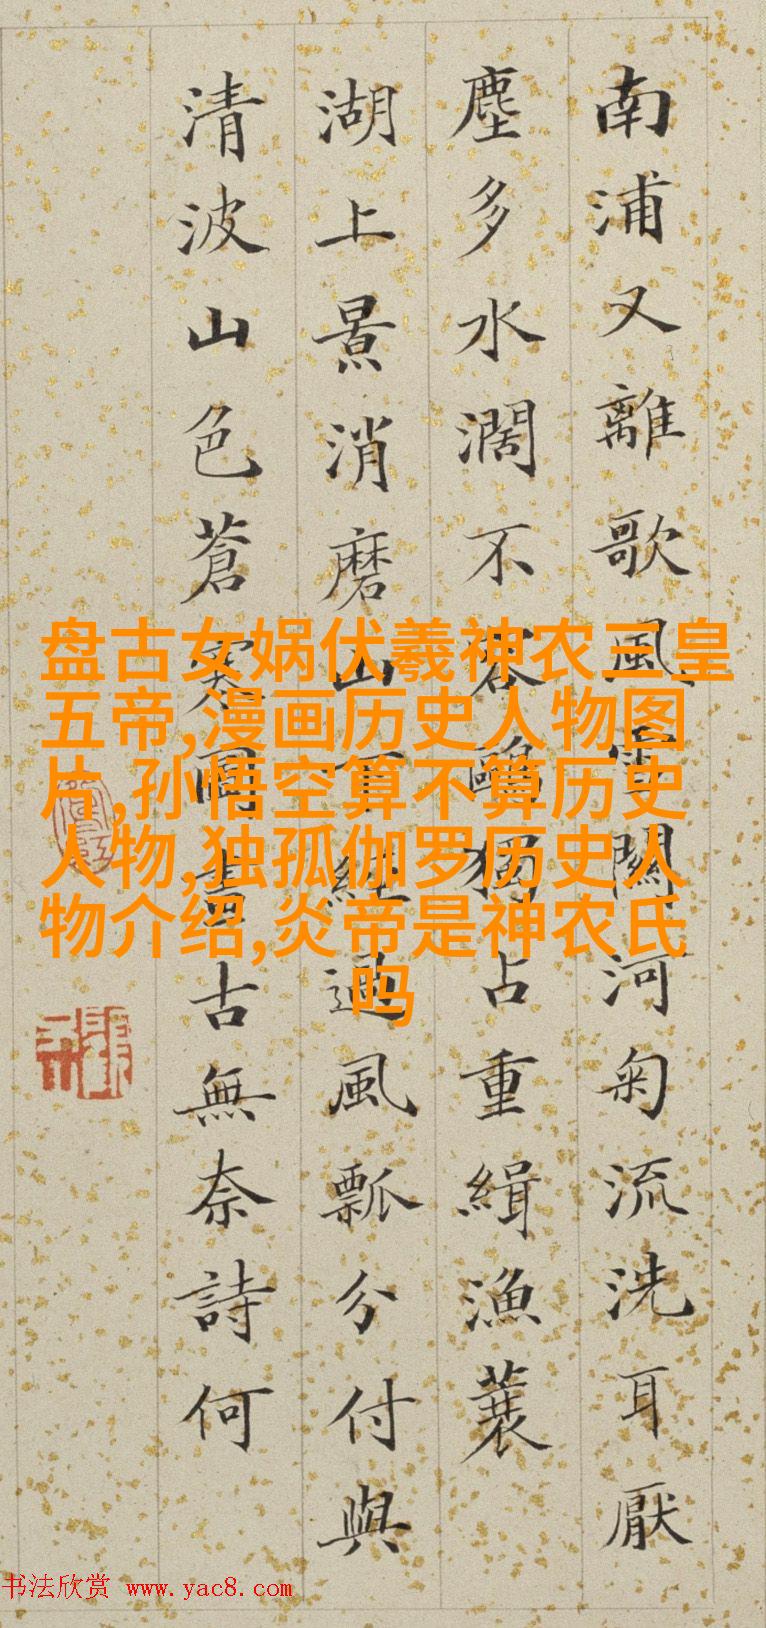 南浦又離歌風雪關河菊流洗耳厭
塵多水濶不容鷗獨占重緝漁蓑
湖上景消磨山下經過風瓢分付與
清波山色蒼寒閣畫古無奈詩何
盘古女娲伏羲神农三皇
五帝,漫画历史人物图
片,孙悟空算不算历史
人物,独孤伽罗历史人
物介绍,炎帝是神农氏
吗
书法欣赏 www.yac8.com